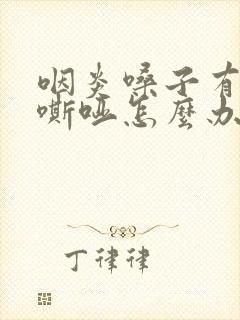 咽炎嗓子有
嘶哑怎麽办
丁律律